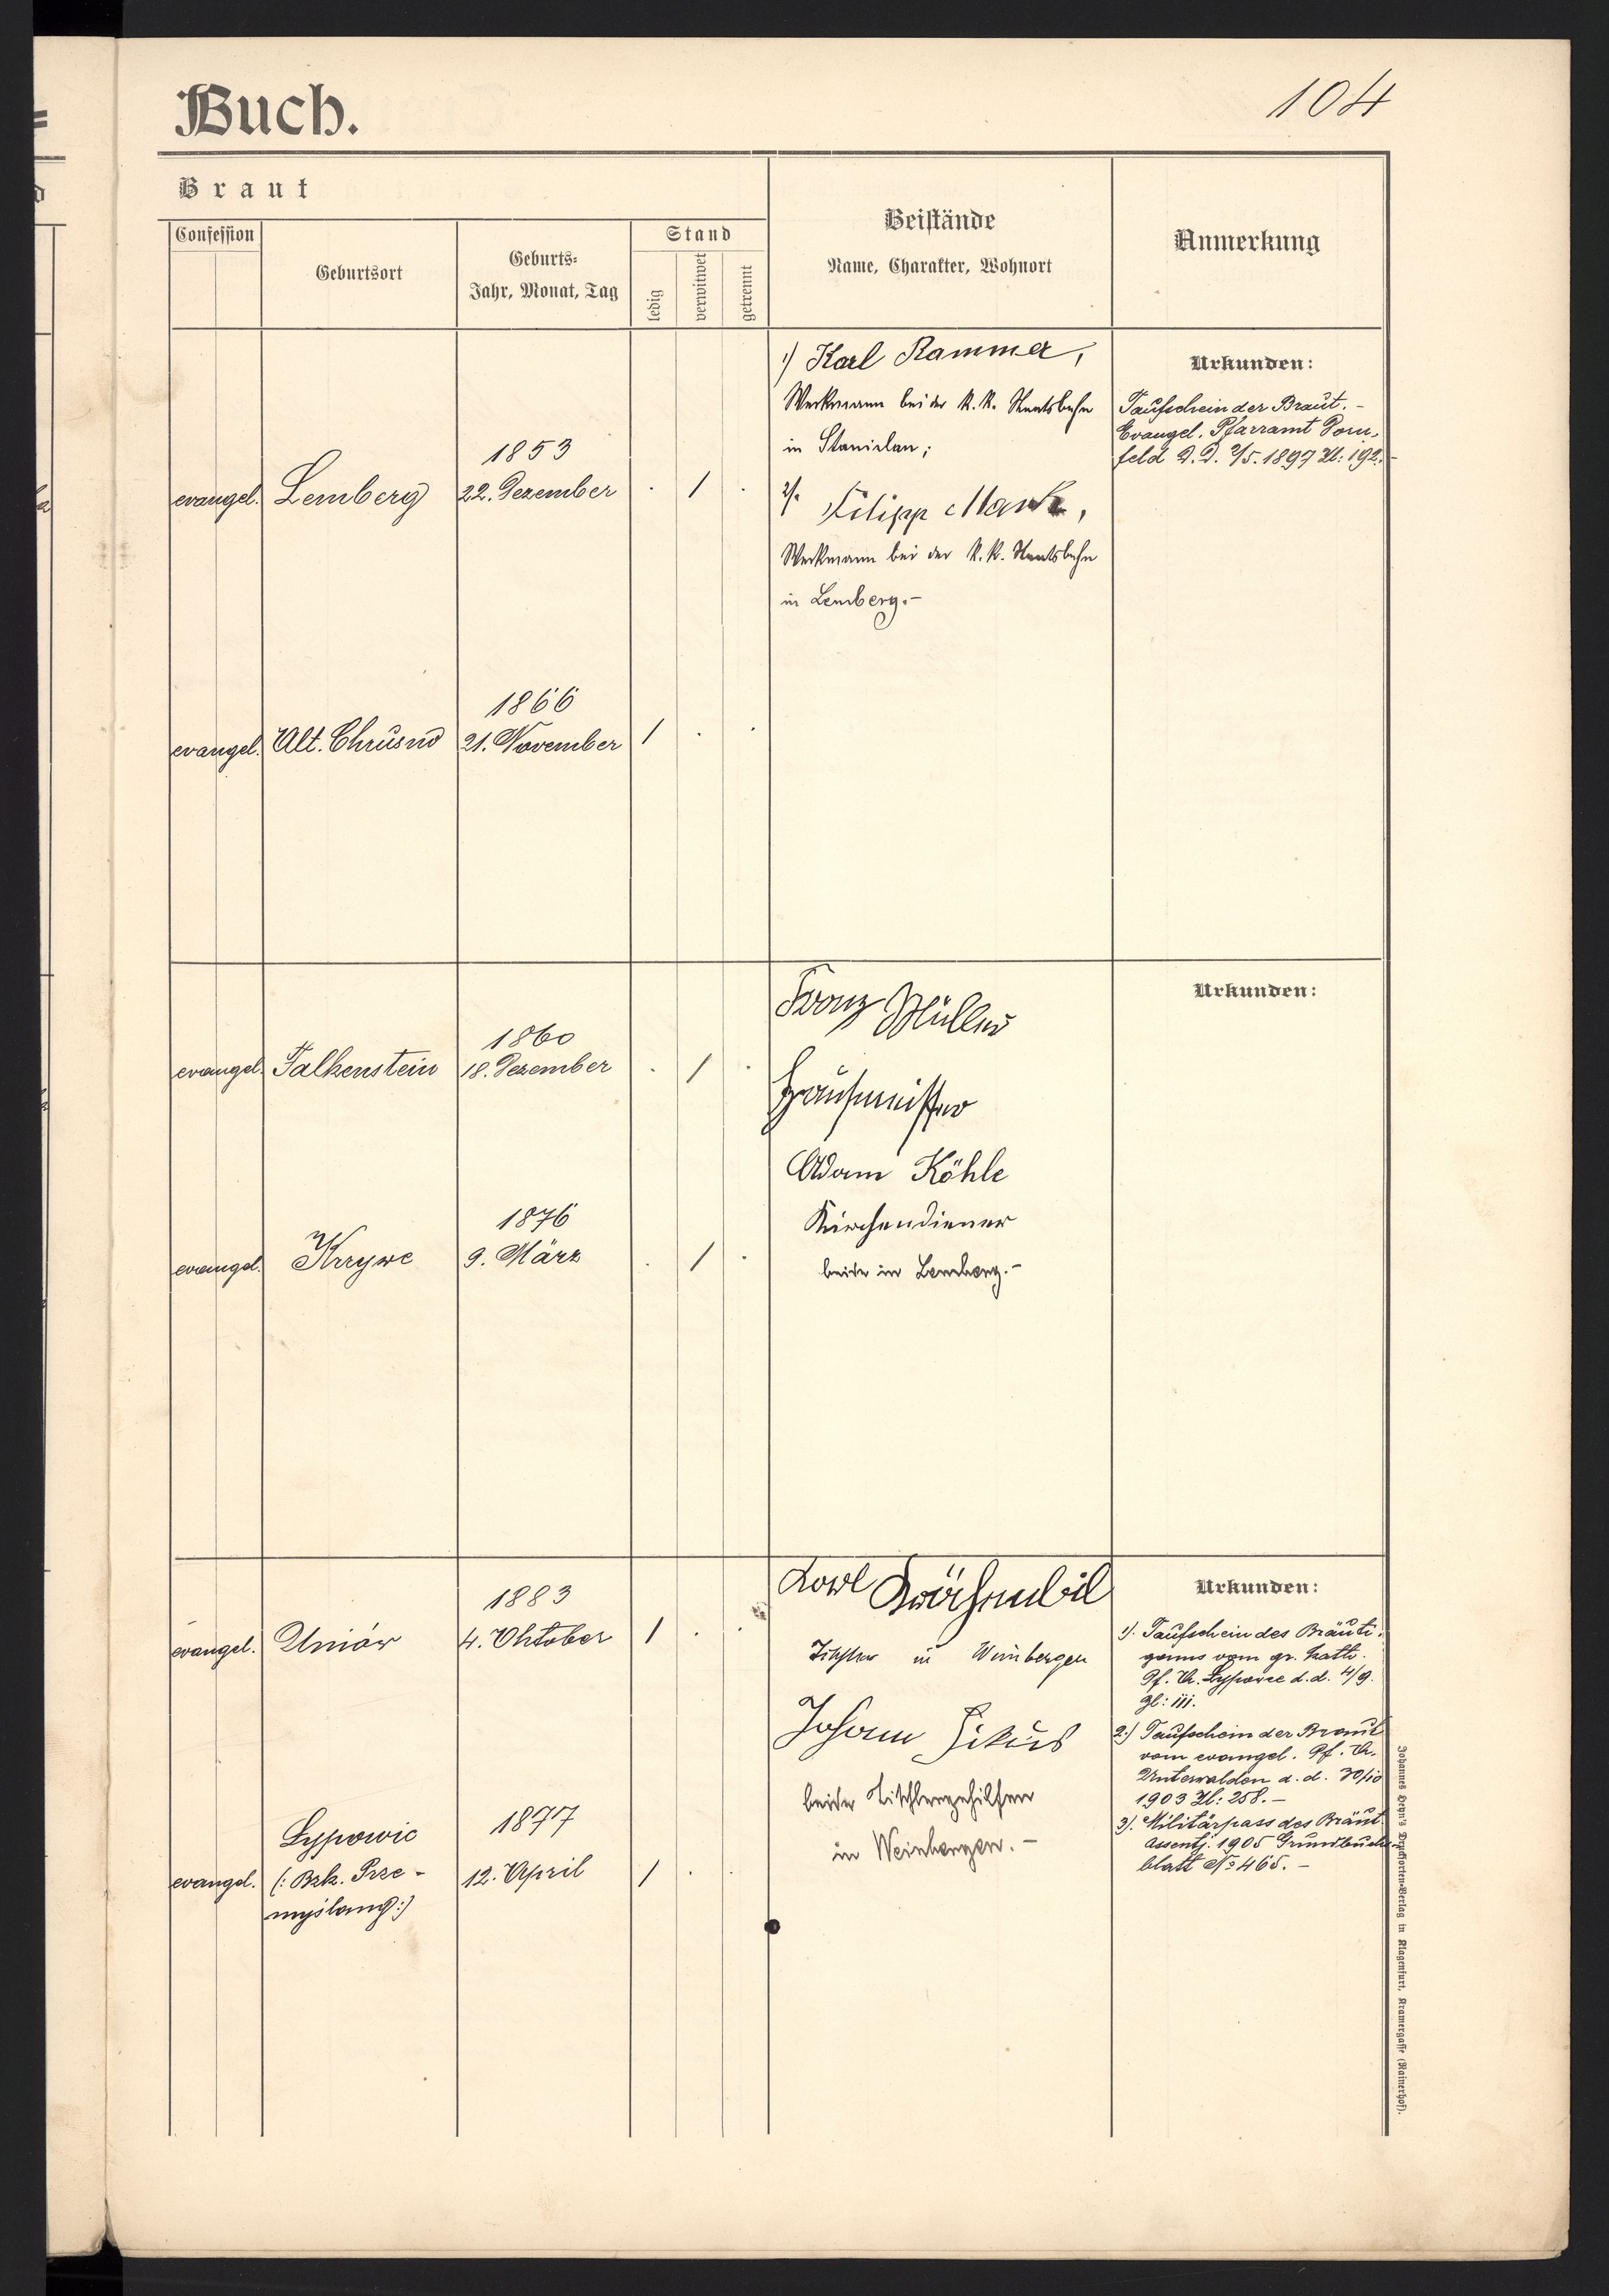 Buch.
104
Braut
Confession
Geburtsort
Geburts-
Jahr, Monat, Tag
Stand
ledig
verwitwet
getrennt
Beistände
Name, Charakter, Wohnort
Anmerkung
evangel.
Lemberg
1853
22. Dezember
. 1 .
1) Karl Rammer,
Werkmann bei der k.k. Staatsbahn
in Stanislau;
2).
Filipp Mank,
Werkmann bei der k.k. Staatsbahn
in Lemberg.-
Urkunden:
Taufschein der Braut.-
Evangel. Pfarramt Dorn-
feld d.d. 2/5. 1897 Zl: 192.-
evangel.
Alt. Chrusno
1866
21. November
1 . .
evangel.
Falkenstein
1860
18. Dezember
. 1 .
Franz Müller
Hausmeister
Adam Köhle
Kirchendiener
beide in Lemberg.-
Urkunden:
evangel.
Krzywe
1876
9. März
. 1 .
evangel.
Uniów
1883
4. Oktober
1 . .
Karl
Tischler in Weinbergen
Johann
beide Tischlergehilfen
in Weinbergen.-
Urkunden:
1). Taufschein des Bräuti-
gams vom gr. kath.
Pf. A. Lypowce d.d. 4/9.
Zl: 111.
2.) Taufschein der Braut
vom evangel. Pf. A.
Unterwalden d.d. 30/10
1903 Zl: 258.-
3). Militärpass des Bräut.
Assentj. 1905 Grundbuchs-
blatt No 465.-
evangel.
Lypowic
(: Bzk. Prze-
myślany:)
1877
12. April
1 . .
Johannes Heyn's Drucksorten-Verlag in Klagenfurt, Kramergasse (Rainerhof).